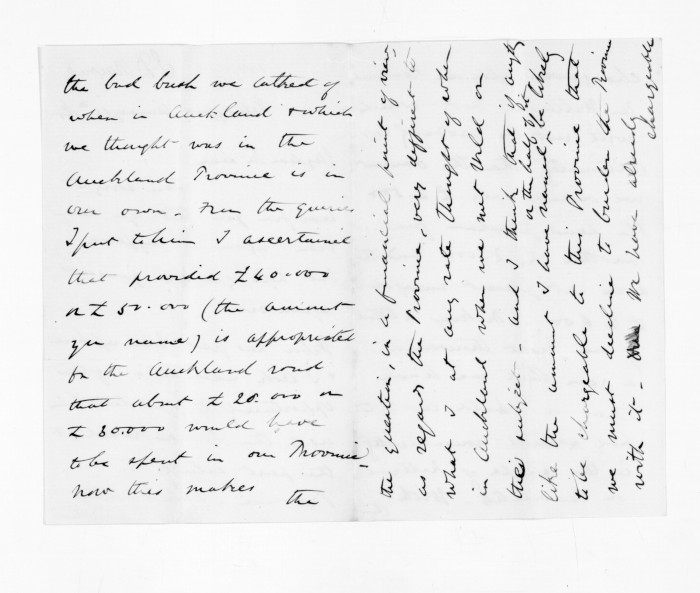 the bad bush we talked of
when in Auckland & which
we thought was in the
Auckland Province is in
our own - From the queries
I put to him I ascertained
that provided £40.000
or £50.000 (the amount
you name) is appropriated
for the Auckland road
that about £20.000 or
£30.000 would have
to be spent in our Province -
now this makes
the
the question, in a financial point of view,
as regards the Province, very different to
what I at any rate thought of when
in Auckland when we met Weld on
this subject - and I think that if anything
or the half of it
like the amount I have named & be likely
to be chargeable to this Province that
we must decline to burden the Province
with it - We have already
chargeable